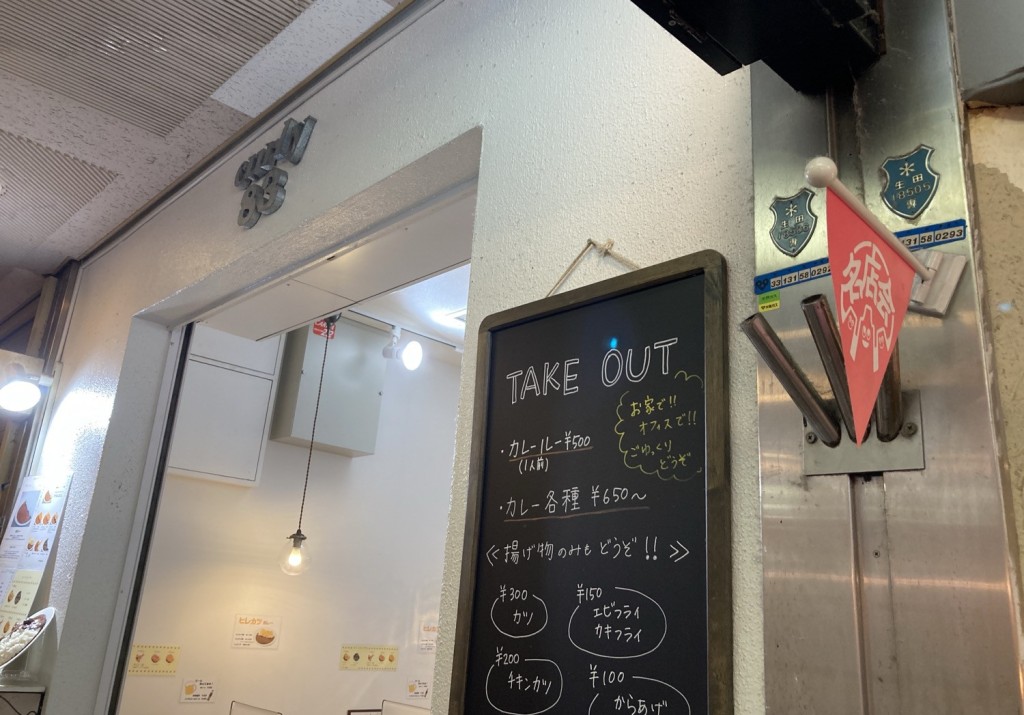 curry
83
TAKE OUT
お家で!!
オフィスで!!
ごゆっくり
どうぞ
・カレールー¥500
(1人前)
・カレー各種 ¥650〜
≪揚げ物のみも どうぞ!!≫
¥300
カツ
¥150
エビフライ
カキフライ
¥200
チキンカツ
¥100
からあげ
ヒレカツ
生田
生田
18505
33 131 58 029
131 58 0293
名店会